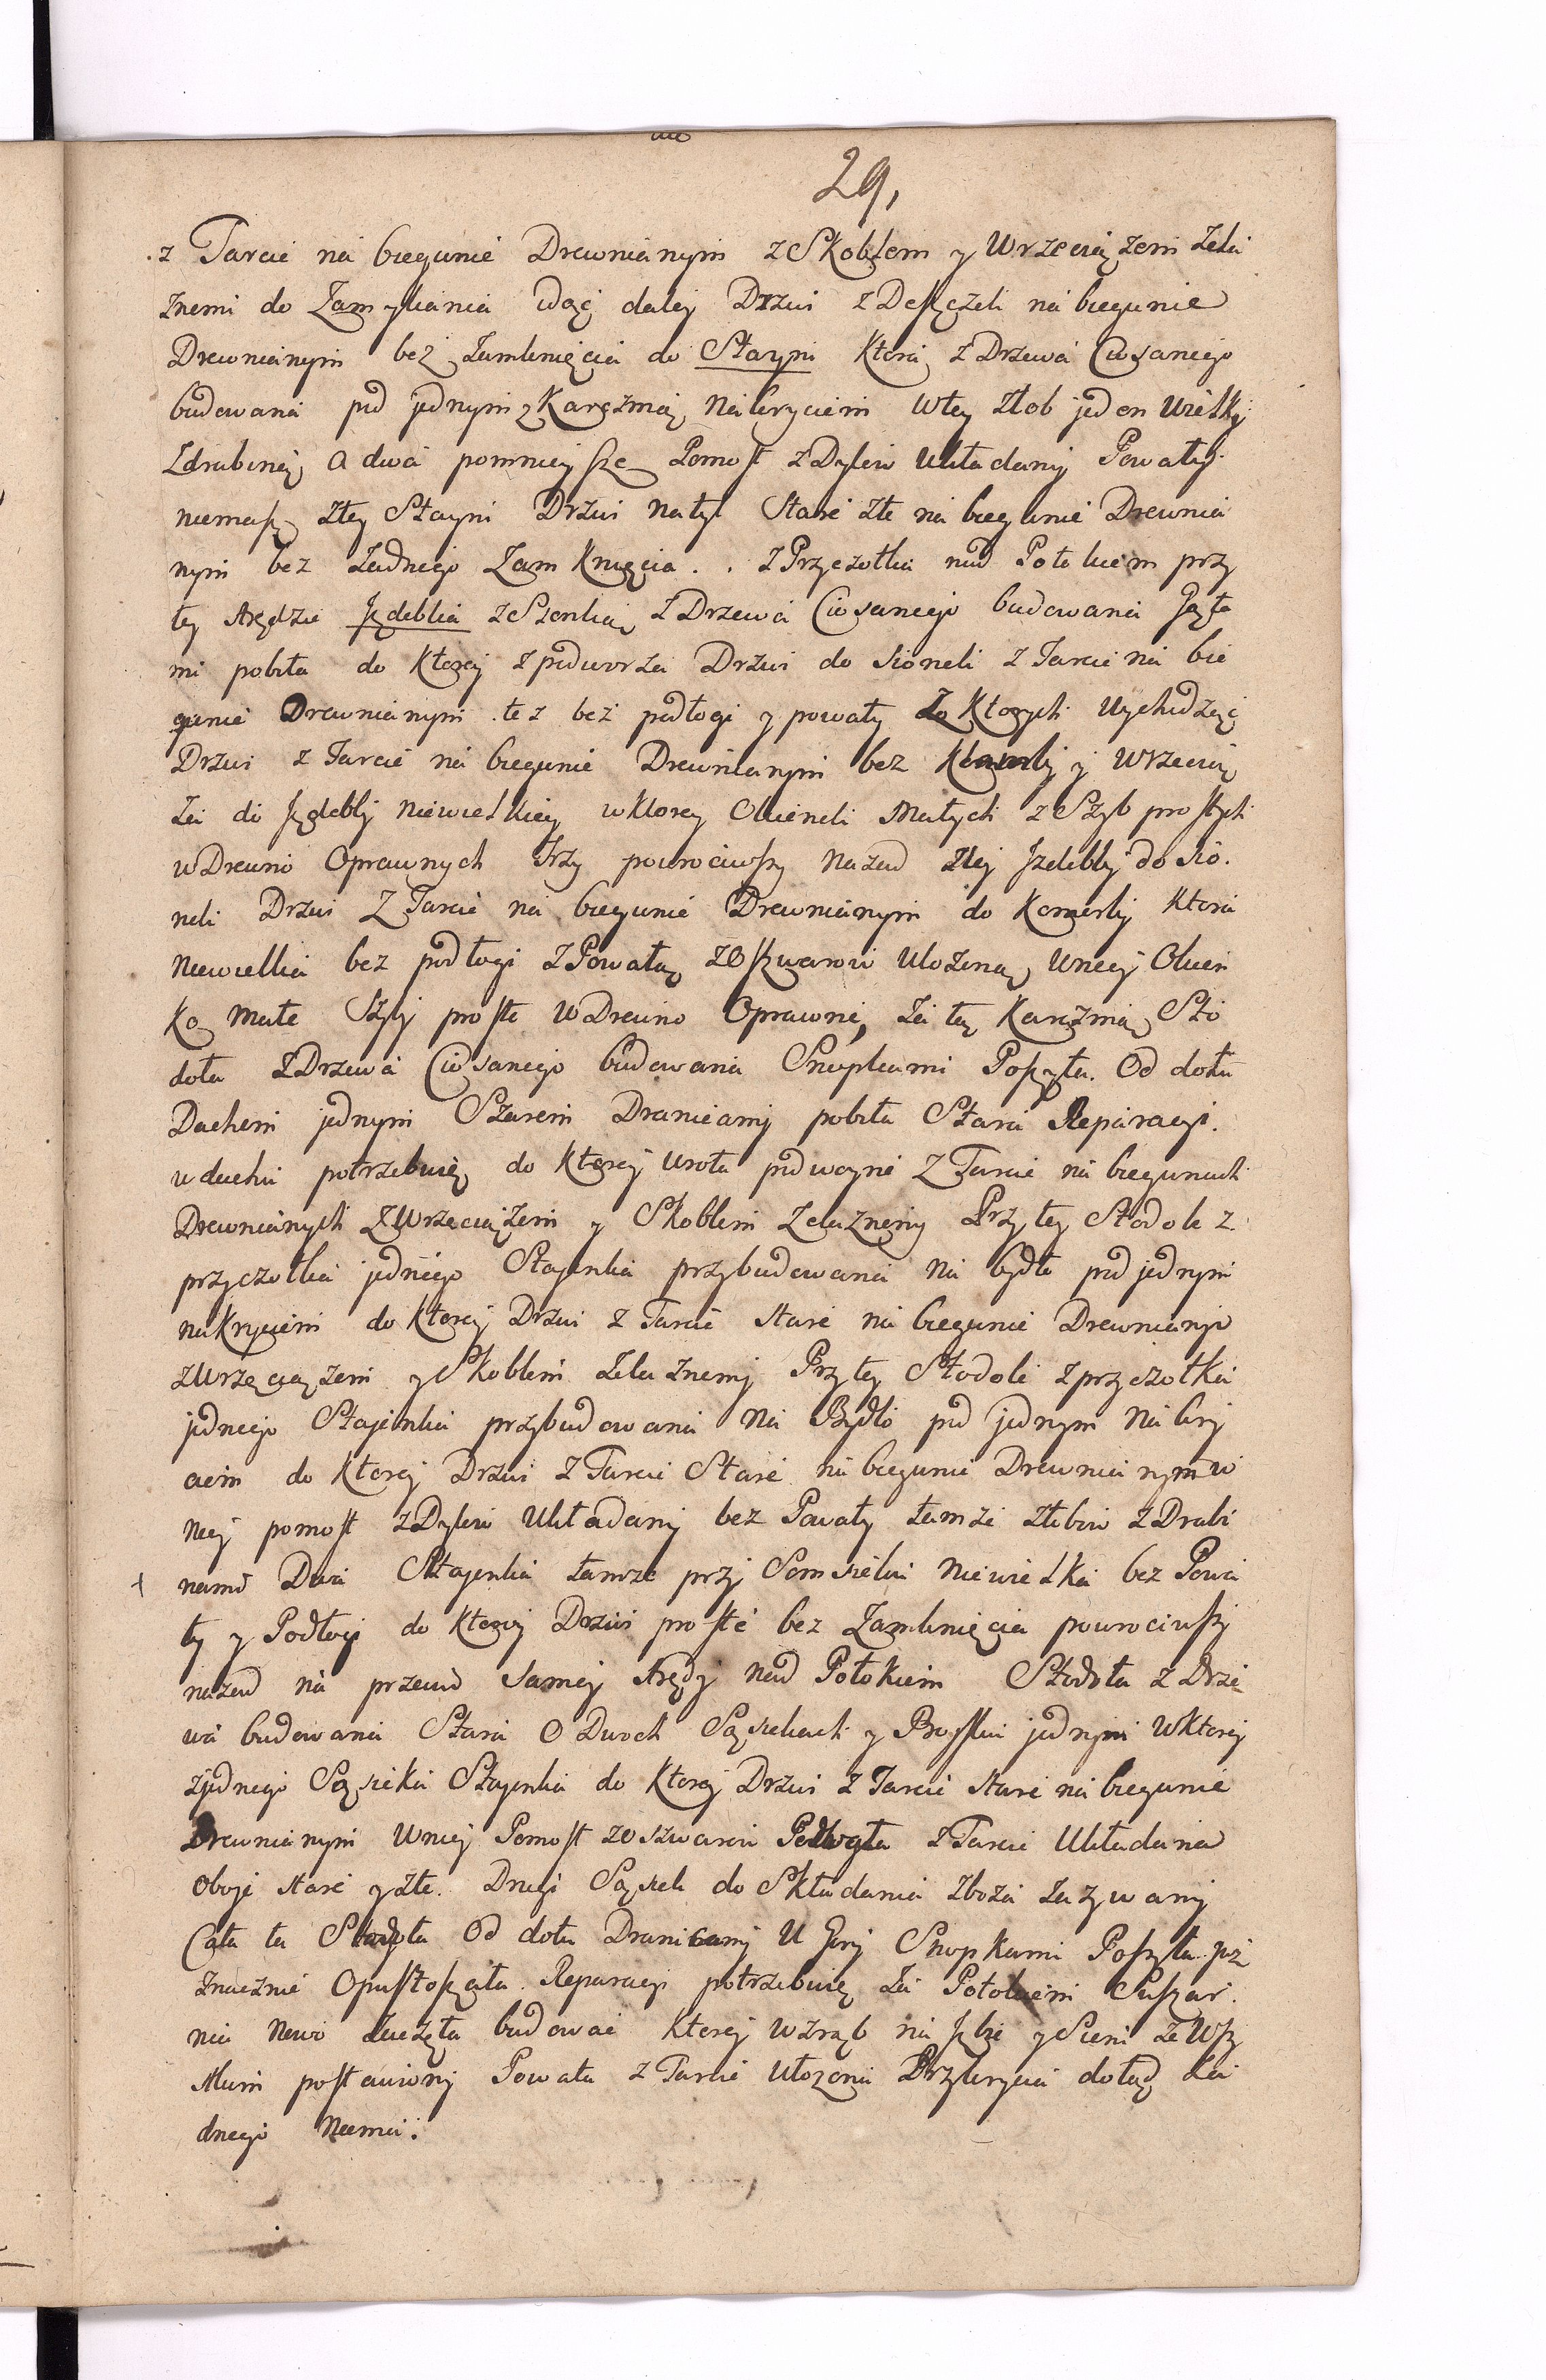 29,
z Tarcic na biegunie Drewnianym z Skoblem y Wrzeciążem Żela
znemi do Zamykania idąc daley Drzwi z Deszczek na biegunie
Drewnianym bez Zamknięcia do Stayni Ktora z Drzewa Ciosanego
budowana pod jednym z Karczmą Nakryciem w tey Złob jeden Wielky
z drabiną a dwa pomnieysze Pomost z Dylow Układany Powały
niemasz z tey Stayni Drzwi na tył Stare złe na biegunie Drewnia
nym bez Żadnego Zamknięcia . . z Przyczołka nad Potokiem przy
tey Arędzie Izdebka z Sionką z Drzewa Ciosanego budowana Gąta
mi pobita do Ktorey z podworza Drzwi do sionki z Tarcic na bie
gunie Drewnianym tez bez podłogi y powały Z Ktorych Wychodząc
Drzwi z Tarcic na biegunie Drewnianym bez Klamky y Wrzecią
za do Izdebky niewielkiey w ktorey Okienek Małych z Szyb prostych
w Drewno Oprawnych Trzy powrociwszy nazad z tej Izdebky do sio
nki Drzwi z Tarcic na biegunie Drewnianym do Komorky Ktora
niewielka bez podłogi z Powałą z Oszwarow ułożoną w niey Okien
ko Małe Szyby proste w Drewno Oprawne, za tą Karczmą Sto
doła z Drzewa Ciosanego budowana Snopkami Poszyta. Od dołu
Dachem jednym Szarem Dranicamy pobita Stara Reparacyi.
w dachu potrzebuię do Ktorey wrota podwoyne z Tarcic na biegunach
Drewnianych z Wrzeciążem y Skoblem Zelaznemy Przy tey Stodole z
przyczołka jednego Stayenka przybudowana na bydło pod jednym
nakryciem do Ktorey Drzwi z Tarcic stare na biegunie Drewnianyo
z Wrzeciążem y Skoblem Zelaznemy Przy tey Stodole z przyczołka
jednego Stajenka przybudowana na Bydło pod jednym nakry
ciem do Ktorey Drzwi z Tarcic Stare na biegunie Drewnianym w
niey pomost z Dylow Układany bez Powały tamże złobow z Drabi
namy Dwa Stayenka tamże przy Somsieku niewielka bez Powa
ły y Podłogi do Ktorey Drzwi proste bez Zamknięcia powrociwszy
nazad na przeciw samey Arędy nad Potokiem Stodoła z Drze
wa budowana Stara O Dwoch Sąsiekach y Boisku jednym w Ktorey
z jednego Sąsieka Stayenka do Ktorey Drzwi z Tarcic stare na biegunie
Drewnianym W niey Pomost z oszwarow Podłoga z Tarcic Układana
oboje stare y złe. Drugi Sąsiek do Składania zboża zażywany
Cała ta Stodoła Od dołu Dranicamy U Gory Snopkami Poszyta już
znacznie Opustoszała. Reparacyi potrzebuię Za Potokiem Suszar
nia Nowo Zaczęta budować Ktorey Wzrąb na Izbę y Sieni ze Wsz
stkim postawiony Powała z Tarcic Ułożona Przykrycia dotąd Ża
dnego Niema.